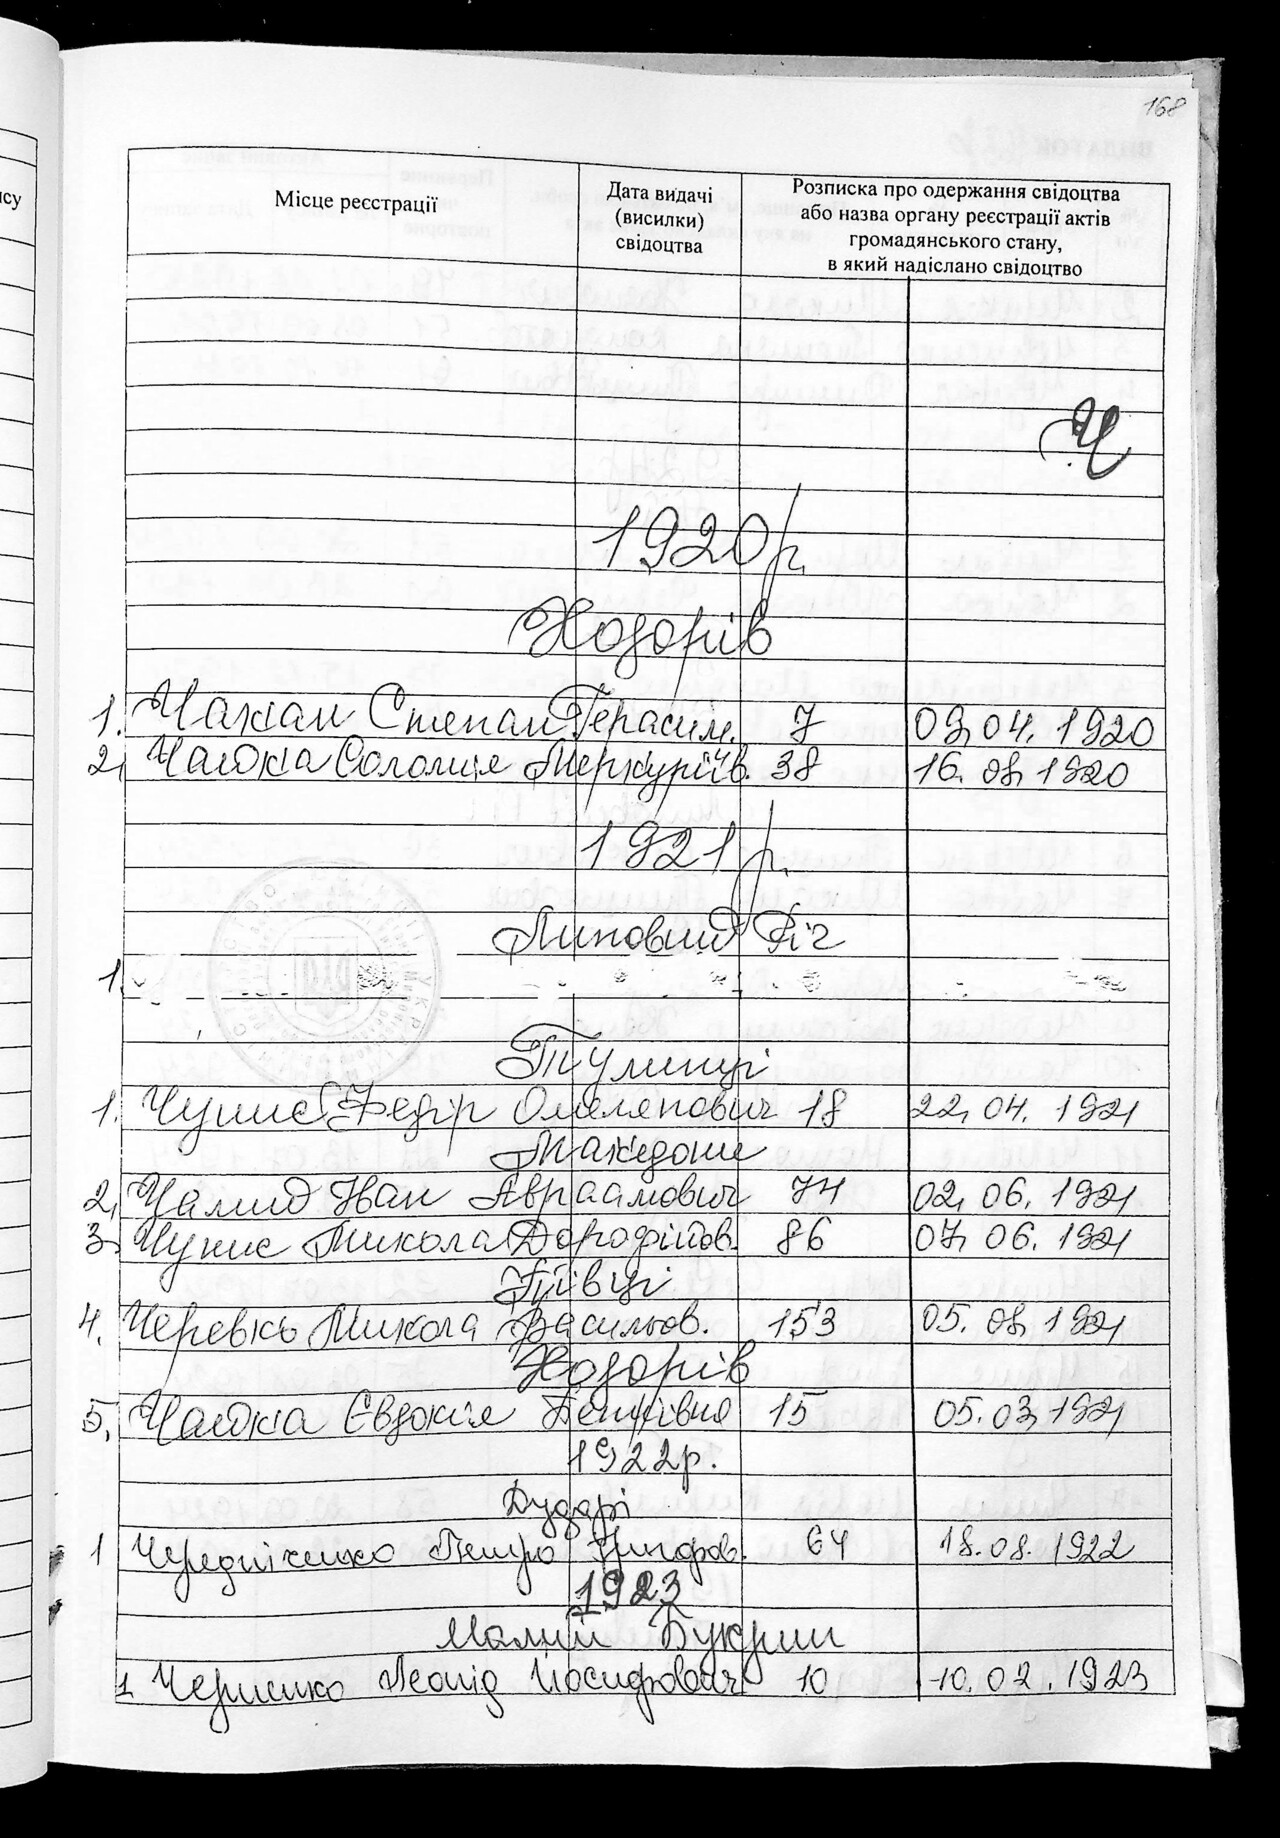 168
Місце реєстрації
Дата видачі
(висилки)
свідоцтва
Розписка про одержання свідоцтва
або назва органу реєстрації актів
громадянського стану,
в який надіслано свідоцтво
Ч
1920 р.
Ходорів
1. Чакал Степан Герасим. 7 09.04.1920
2. Чайка Соломія Меркуріїв. 38 16.08.1920
1921 р.
Липовий Ріг
1.
Тулинці
1. Чупис Федір Омелянович 18 22.04.1921
Македони
2. Чалид Іван Авраамович 74 02.06.1921
3. Чупис Микола Дорофійов. 86 07.06.1921
Пії
4. Черевко Микола Васильов. 153 05.08.1921
Ходорів
5. Чайка Євдокія Петрівна 15 05.03.1921
1922 р.
Дударі
1 Чередніченко Петро 64 18.08.1922
1923
Малий Букрин
1 Черненко Леонід Йосифович 10 10.02.1923